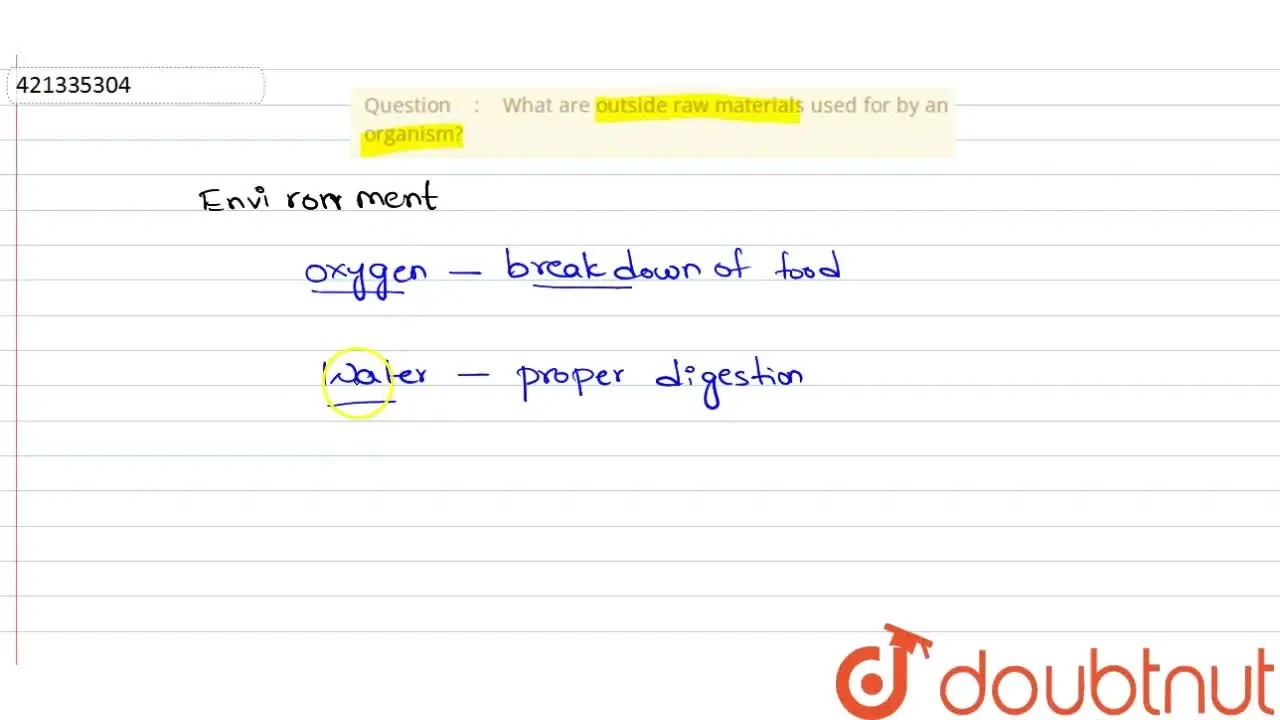 421335304
Question : What are outside raw materials used for by an
organism?
Environment
oxygen — breakdown of food
Water — proper digestion
doubtnut